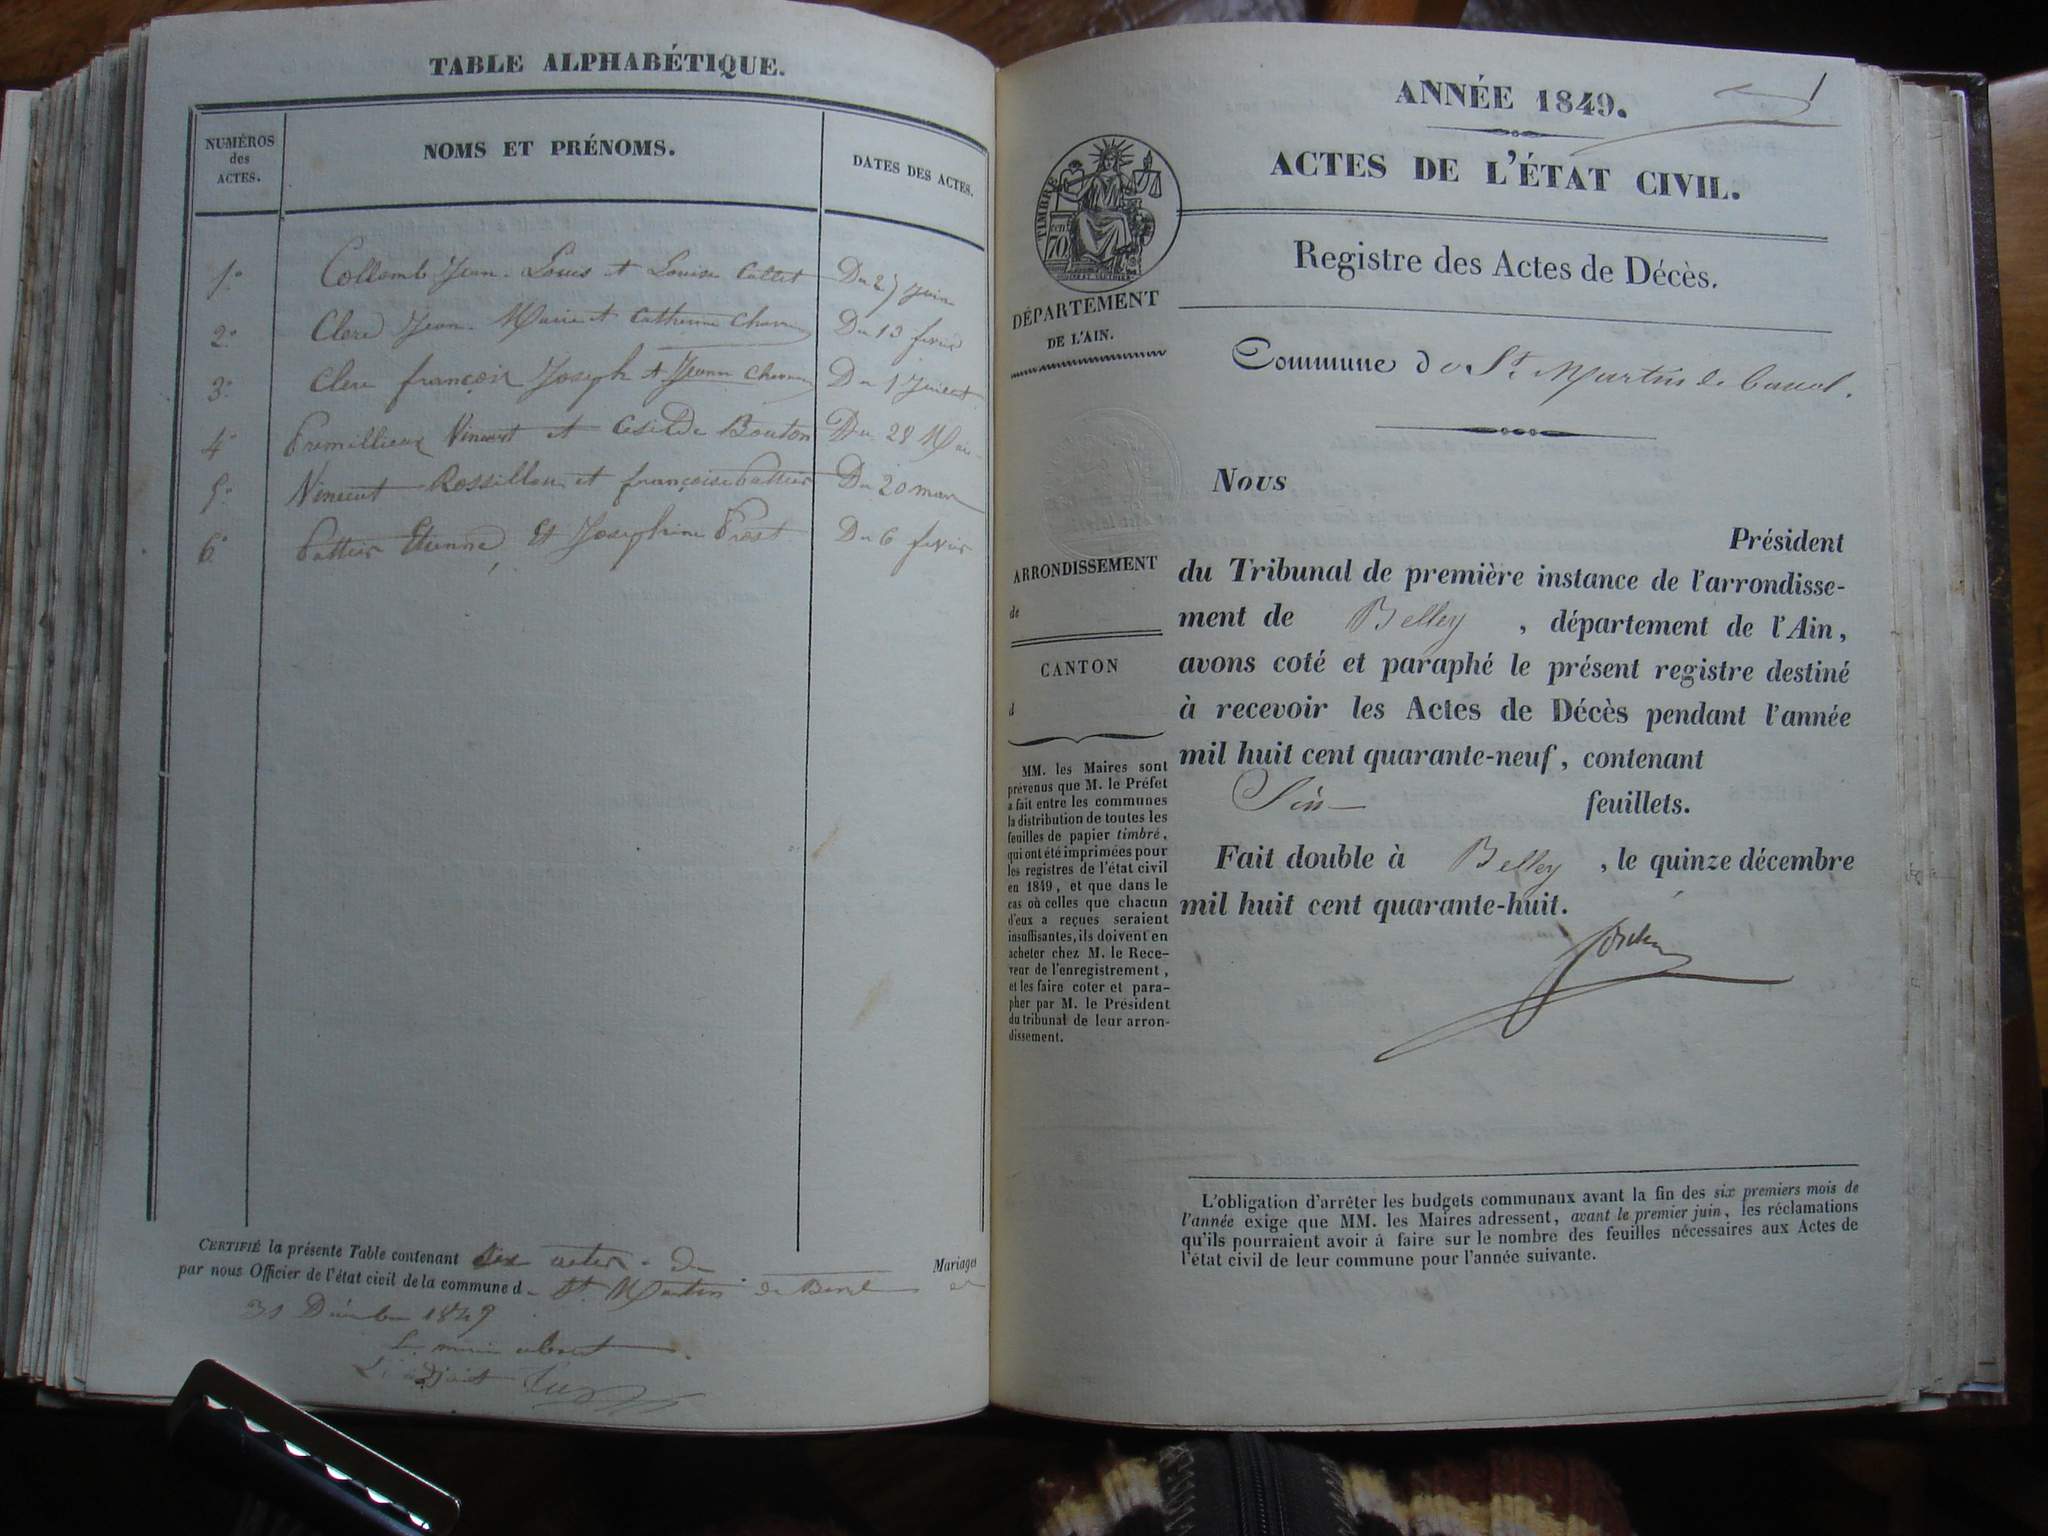 TABLE ALPHABÉTIQUE.
NUMÉROS
des
ACTES.
NOMS ET PRÉNOMS.
DATES DES ACTES.
1° Collomb Jean-Louis et Louise Du 27 Juin
2° Clere Jean-Marie et Catherine Du 13 fevrier
3° Clere françois Joseph et Du 1 Juillet
4° Premillieux Vincent et Bouton Du 28 Mai
5° Vincent Rossillon et françoise Pattier Du 20 mars
6° Pattier Etienne, et Josephine Prost Du 6 fevrier
CERTIFIÉ la présente Table contenant six actes de Mariages
par nous Officier de l'état civil de la commune d St Martin de
31 Décembre 1849
Le maire absent
L'adjoint
ANNÉE 1849.
1
ACTES DE L'ÉTAT CIVIL.
TIMBRE
70 cent
Registre des Actes de Décès.
DÉPARTEMENT
DE L'AIN.
Commune de St. Martin de Bavel.
ARRONDISSEMENT
de
CANTON
d
MM. les Maires sont
prévenus que M. le Préfet
a fait entre les communes
la distribution de toutes les
feuilles de papier timbré,
qui ont été imprimées pour
les registres de l'état civil
en 1849, et que dans le
cas où celles que chacun
d'eux a reçues seraient
insuffisantes, ils doivent en
acheter chez M. le Rece-
veur de l'enregistrement,
et les faire coter et para-
pher par M. le Président
du tribunal de leur arron-
dissement.
Nous
Président
du Tribunal de première instance de l'arrondisse-
ment de Belley, département de l'Ain,
avons coté et paraphé le présent registre destiné
à recevoir les Actes de Décès pendant l'année
mil huit cent quarante-neuf, contenant
Six feuillets.
Fait double à Belley, le quinze décembre
mil huit cent quarante-huit.
L'obligation d'arrêter les budgets communaux avant la fin des six premiers mois de
l'année exige que MM. les Maires adressent, avant le premier juin, les réclamations
qu'ils pourraient avoir à faire sur le nombre des feuilles nécessaires aux Actes de
l'état civil de leur commune pour l'année suivante.